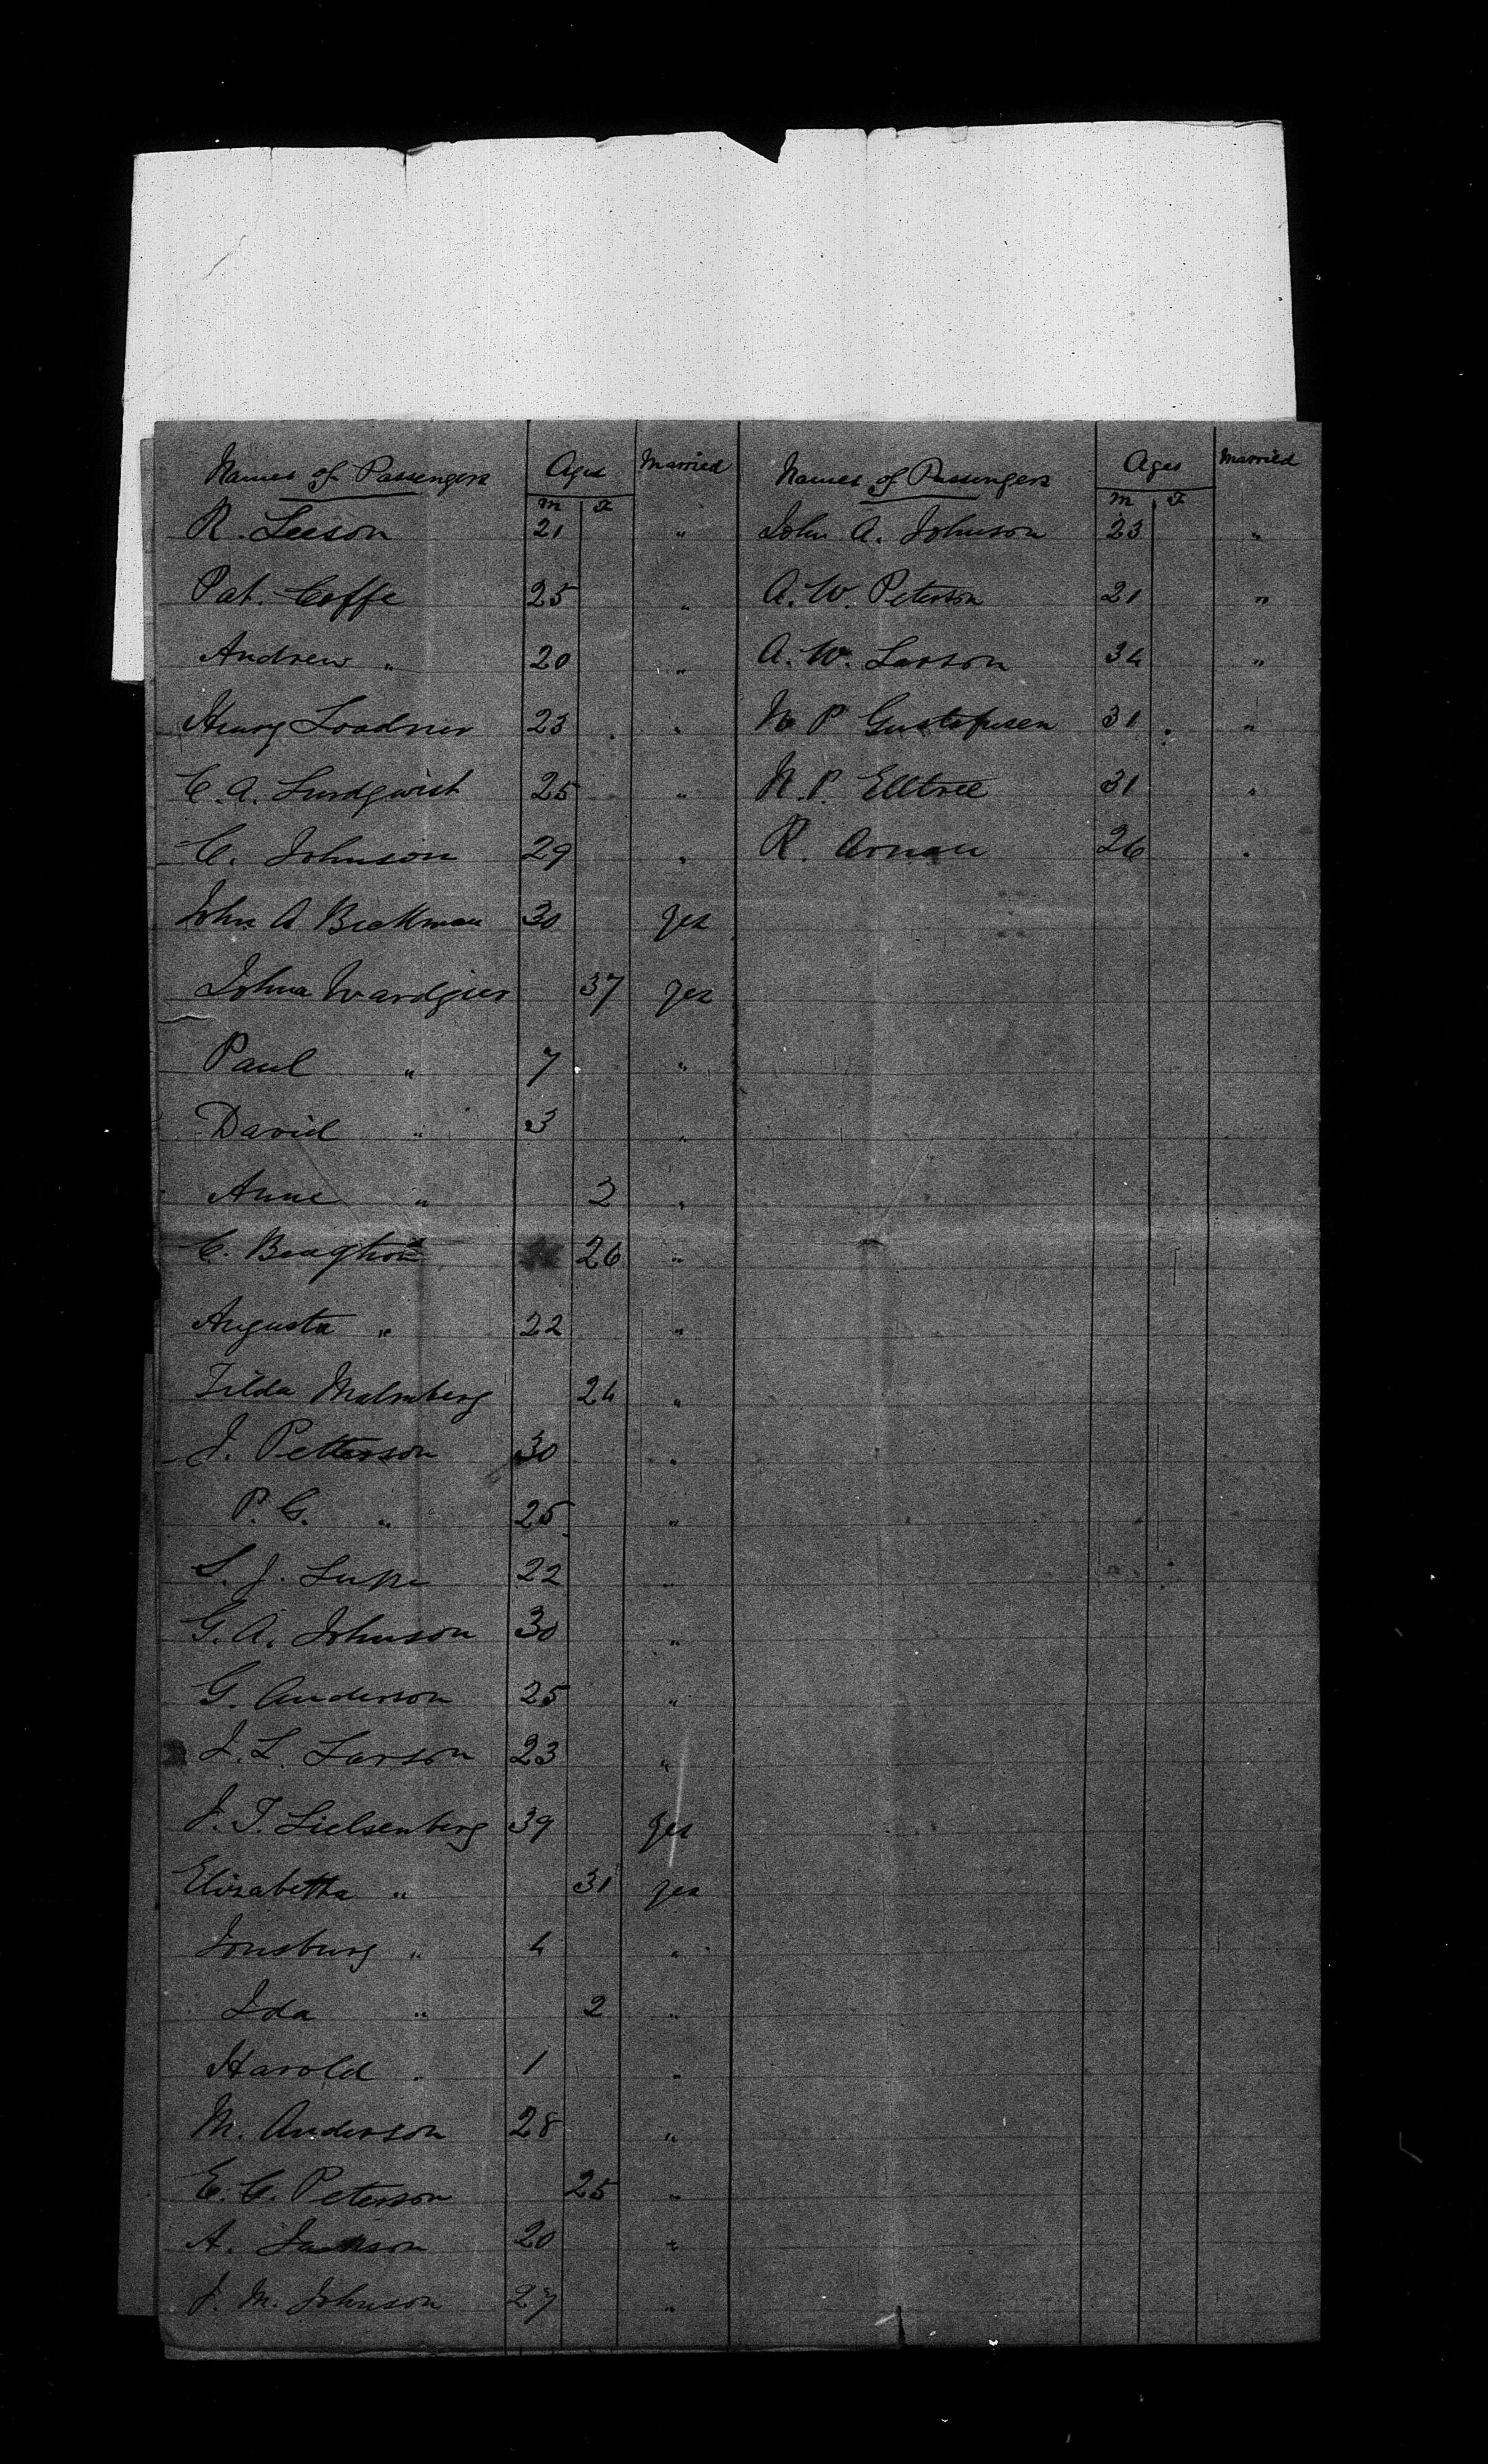 Names of Passengers Ages Married
M F
R. Leeson 21 "
Pat. Coffe 25 "
Andrew " 20 "
Henry 23 "
C. A. Lundqwist 25 "
C. Johnson 29 "
John A Beckman 30 yes
Johna 37 yes
Paul " 7 "
David " 3 "
Anne " 2 "
C. 26 "
Augusta " 22 "
Tilda Malmberg 24 "
J. Petterson 30 "
P. G. " 25 "
S. J. 22 "
G. A. Johnson 30 "
G. Anderson 25 "
J. L. Larson 23 "
J. T. Lielsenberg 39 yes
Elisabetha " 31 yes
" 4 "
Ida " 2 "
Harold " 1 "
M. Anderson 28 "
E. C. Peterson 25 "
A. Jackson 20 "
J. M. Johnson 27 "
Names of Passengers Ages Married
M F
John A. Johnson 23 "
A. W. Peterson 21 "
A. W. Larson 34 "
N P Gustafusen 31 "
N. P. Elltree 31 "
R. Arnau 26 "